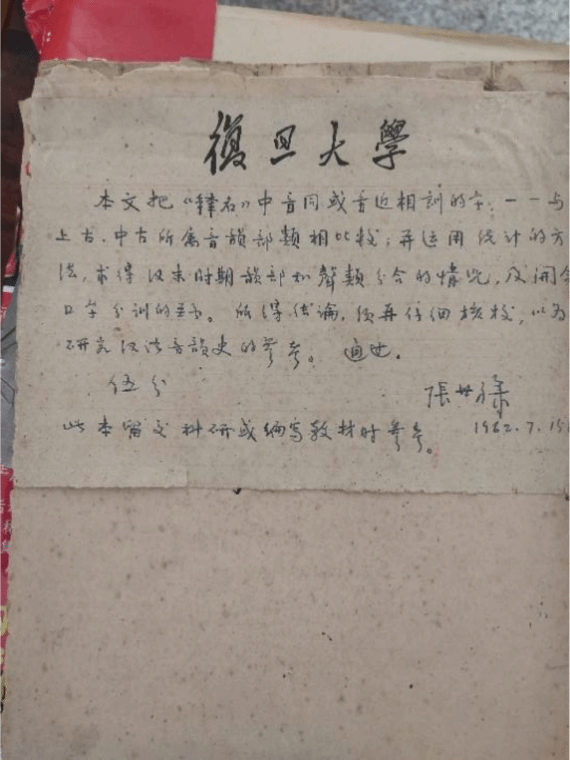 復旦大學
本文把《釋名》中音同或音近相訓的字,一一与
上古、中古所属音韻部類相比較;并运用统计的方
法,求得汉末时期韻部和聲類分合的情况,及開合
口字分訓的。所得结論,须再仔细核校,以为
研究汉语音韻史的參考。通过。
伍分
張世禄
1962.7.15
此本留交科研或编写教材时參考。